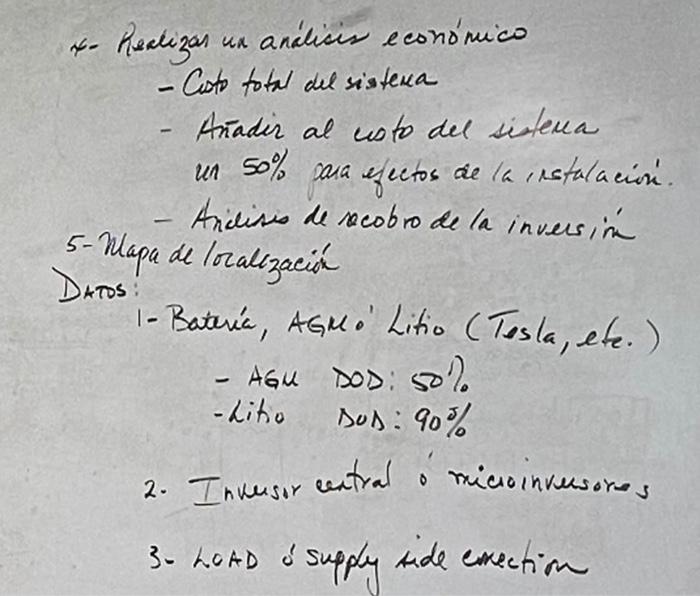 4- Realizar un análisis económico
- Costo total del sistema
- Añadir al costo del sistema
un 50% para efectos de la instalación.
- Análisis de recobro de la inversión
5- Mapa de localización
DATOS:
1- Batería, AGM ó Litio (Tesla, etc.)
- AGM DOD: 50%
- Litio DOD: 90%
2. Inversor central ó microinversores
3- LOAD ó supply side conection